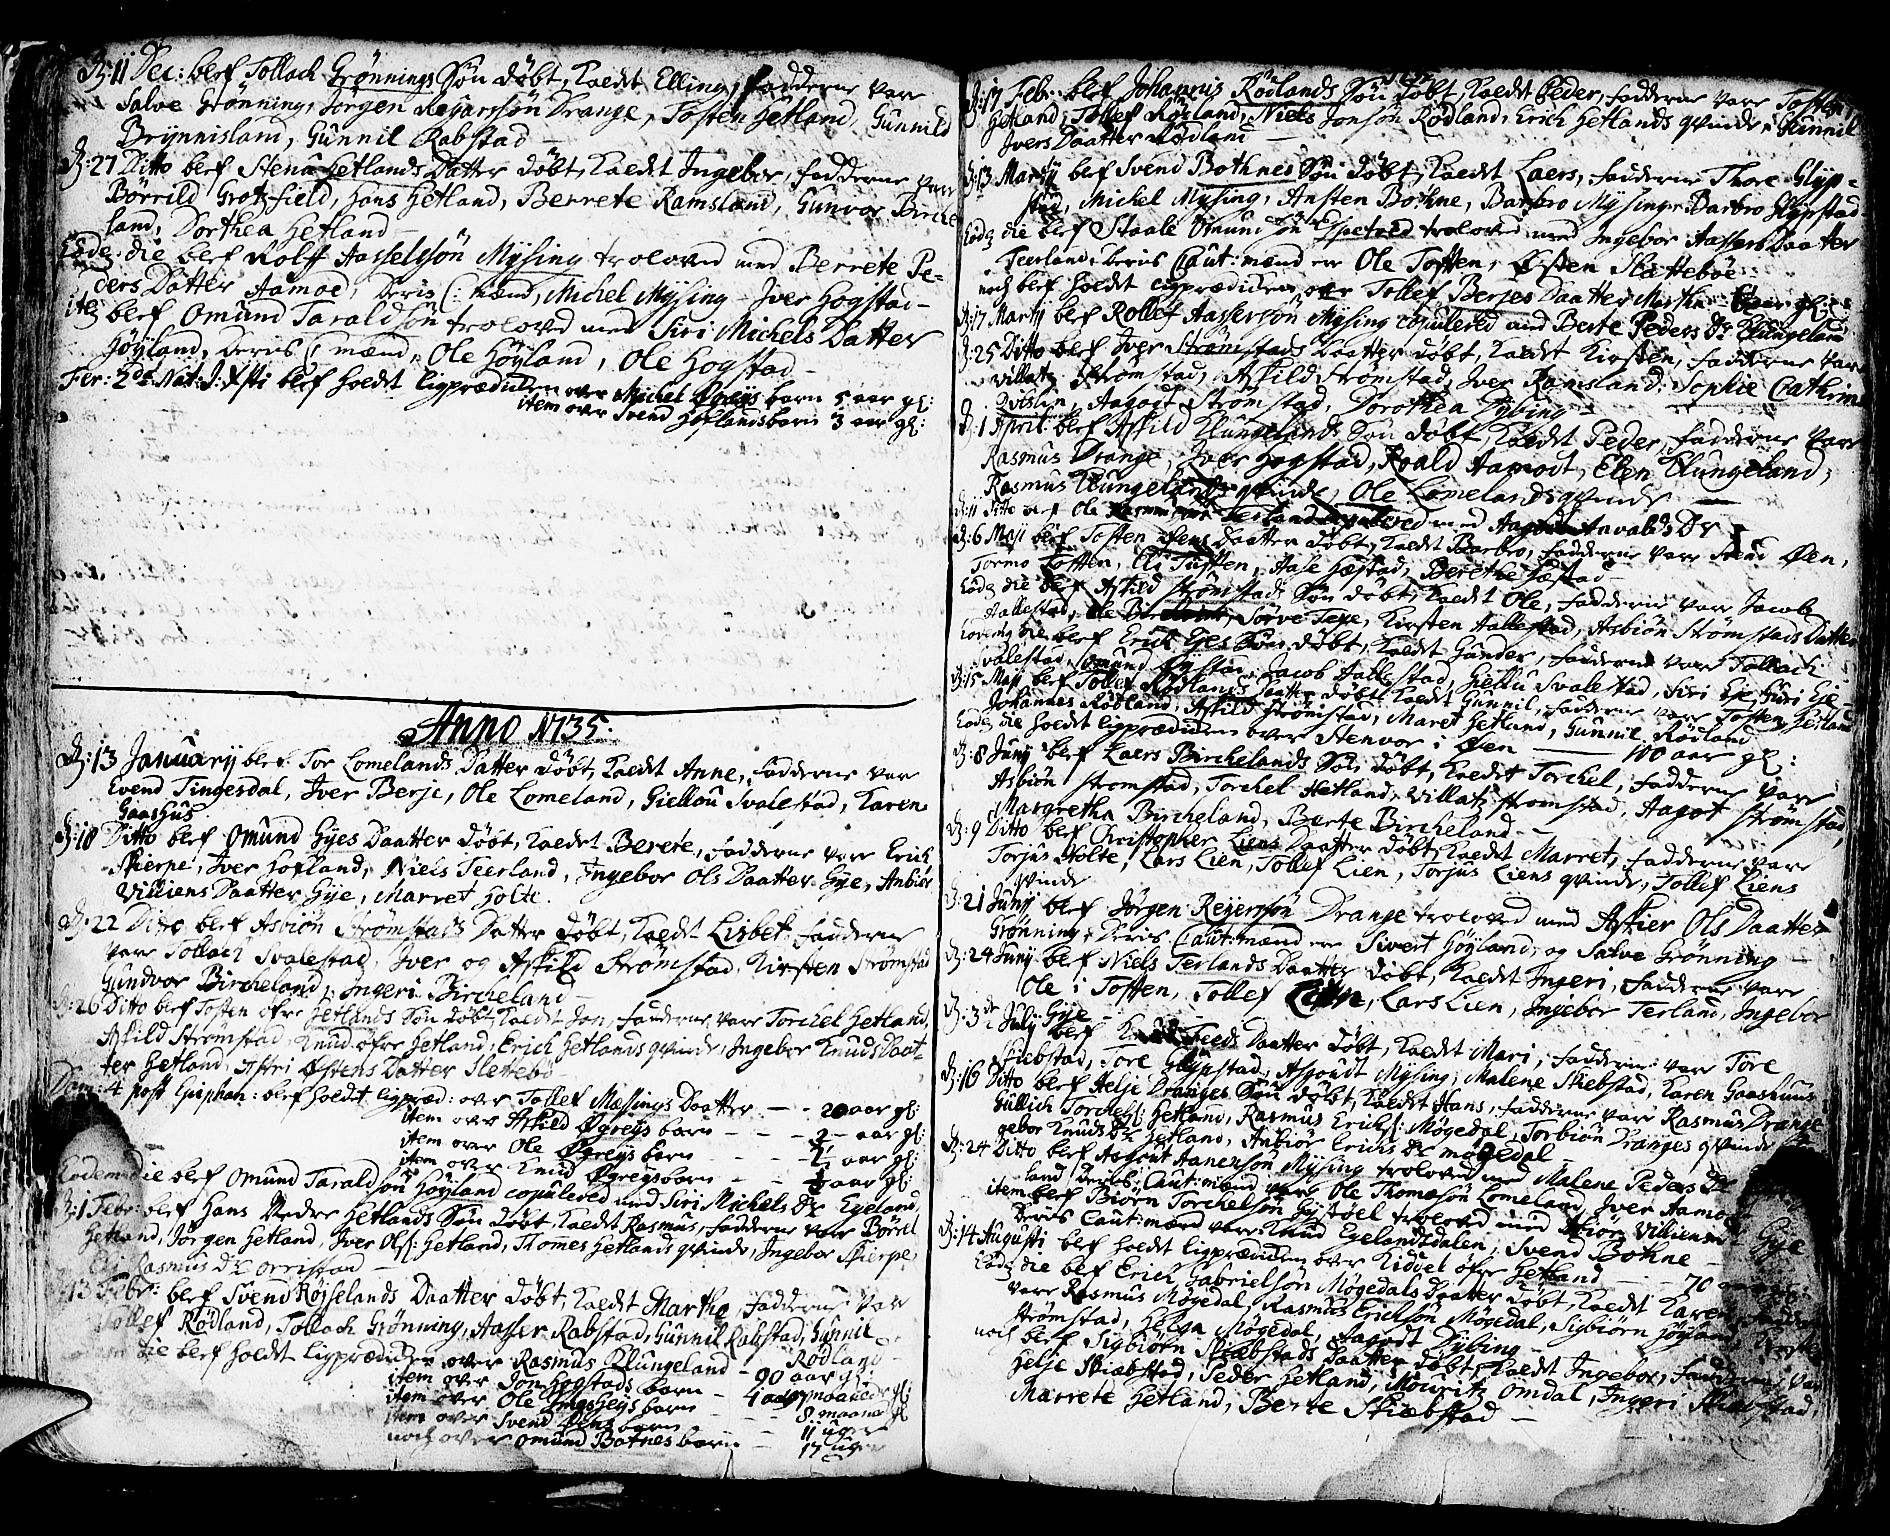 D: 11 Dec: blef Tollach Grønnings Søn døbt, kaldt Elling, fadderne vare
Salve Grønning, Jørgen Reyarssøn Drange, Tosten Hetland, Gunnild
Brynnisland, Gunnil Rabstad
D: 27 Ditto blef Stenu Hetlands Datter døbt, kaldt Ingebor, fadderne vare
Børrild Grotsfield, Hans Hetland, Berrete Ramsland, Gunvor Birche
land, Dorthea Hetland
Eode: die blef Rolf Aasselssøn Mysing trolovd med Berrete Pe-
ders Datter Aamoe, deris C: mænd, Michel Mysing - Iver Hogstad -
it: blef Omund Taraldsøn trolovd med Siri Michels Datter
Høyland, deris C: mænd, Ole Høyland, Ole Hogstad -
Fer: 2de Nat: J: Xsti blef holdt ligprædichen over Michel barn 5 aar gl:
item over Svend Hoflands barn 3 aar gl:
Anno 1735.
D: 13 Januarij blef Tor Lomelands Datter døbt, kaldt Anne, fadderne vare
Evend Tingesdal, Iver Berje, Ole Lomeland, Giellou Svalestad, Karen
Gaashus
D: 18 Ditto blef Omund Gyes Daatter døbt, kaldt Berete, fadderne vare Erich
Skierpe, Iver Hofland, Niels Teerland, Ingebor Ols Daatter Gye, Anbiør
Villiens Daatter Gye, Marret Holte.
D: 22 Ditto blef Asbiøn Strømstads Datter døbt, kaldt Lisbet, fadderne
vare Tollach Svalestad, Iver og Askild Strømstad, Kirsten Strømstad
Gundvor Bircheland, Ingeri Bircheland -
D: 26 Ditto blef Tosten øfre Hetlands Søn døbt, kaldt Jon, fadderne vare Torchel Hetland,
Askild Strømstad, Knud øfre Hetland, Erich Hetlands qvinde, Ingebor Knuds Daat-
ter Hetland, Astri Østens Datter Slettebø
Dom: 4 post Epiphan: blef holdt ligpræd: over Tollef Mæssings Daatter - - 20 aar gl:
item over Askild Øgreys barn - - - 2 - aar gl:
item over Ole Øgreys barn - - - aar gl:
item over Knud Øgreys barn - - aar gl:
Eodem die blef Omund Taraldsøn Høyland copulered med Siri Michels Dr Egeland,
D: 1 Febr: blef Hans Nedre Hetlands Søn døbt, kaldt Rasmus, fadderne vare Børrel
Hetland, Jørgen Hetland, Iver Ols: Hetland, Thommes Hetlands qvinde, Ingebor Skierpe,
Rasmus Dr Orrestad
13 Febr: blef Svend Røiselands Daatter døbt, kaldt Martha, fadderne var
Tollef Rødland, Tollach Grønning, Aasser Rabstad, Gunnil Rabstad, Gunnil
Rødland -
die blef holdt ligprædichen over Rasmus Klungeland - 90 aar gl:
item over Jon Hogstads barn - 4 aar maaneder gl:
item over Ole barn - - 8 maaned gl
item over Svend barn - - 11 uger
noch over Omund Botnes barn - - 17 uger
D: 17 Febr: blef Johannis Rødlands Søn døbt, kaldt Peder, fadderne vare Tosten
Hetland, Tollef Rødland, Niels Jonsøn Rødland, Erich Hetlands qvinde, Gunnil
Ivers Daatter Rødland -
D: 13 Martij blef Svend Bothnes Søn døbt, kaldt Laers, fadderne Thore Glyp-
stad, Michel Mysing, Ansten Bothne, Barbro Mysing, Barbro Glypstad
Eod: die blef Staale Omundsøn Espetved trolovd med Ingebor Aassers Daatter
Teerland, deris Caut: mænd er Ole Tosten, Østen Slættebøe
noch blef holdt ligprædichen over Tollef Berjes Daatter Martha
D: 17 Martij blef Rollef Aassersøn Mysing copulered med Berte Peders Dr Klungeland
D: 25 Ditto blef Iver Strømstads Daatter døbt, kaldt Kirsten, fadderne vare
Villatz Strømstad, Askild Strømstad, Iver Ramsland, Sophie Cathrine
Aagodt Strømstad, Dorothea Dybing
D: 1 April: blef Askild Klungelands Søn døbt, kaldt Peder, fadderne vare
Rasmus Drange, Iver Hogstad, Roald Aamodt, Elen Klungeland,
Rasmus Klungelands qvinde, Ole Lomelands qvinde
D: 11 Ditto blef Ole Terland copulered med Dr
D: 6 Maji blef Tosten Øens Daatter døbt, kaldt Barbro, fadderne vare Svend Øen,
Tormo Tosten, Eli Tosten, Aase Hæstad, Berethe Hæstad
Eod: die blef Askild Strømstads Søn døbt, kaldt Ole, fadderne vare Jacob
Aallestad, Ole Sørve Tepe, Kirsten Aallestad, Asbiøn Strømstads Datter
Eodem die blef Erich Eyes Søn døbt, kaldt Gunder, fadderne vare Tollach
Svalestad, Omund Jacob Aallestad, Giellu Svalestad, Siri Eje, Guri Eje
D: 15 Maji blef Tollef Rødlands Daatter døbt, kaldt Gunnil, fadderne vare Tosten Hetland
Johannes Rødland, Askild Strømstad, Maret Hetland, Gunnil Rødland
Eod: die holdt ligprædichen over Stenvor i Øen - 100 aar gl:
D: 8 Junij blef Laers Birchelands Søn døbt, kaldt Torchel, fadderne vare
Asbiøn Strømstad, Torchel Hetland, Villatz Strømstad, Aagot Strømstad,
Margretha Bircheland, Berte Bircheland -
D: 9 Ditto blef Christopher Liens Daatter døbt, kaldt Marret, fadderne vare
Torjus Holte, Lars Lien, Tollef Lien, Torjus Liens qvinde, Tollef Liens
qvinde
D: 21 Junij blef Jørgen Reyersøn Drange trolovd med Askier Ols Daatter
Grønning, deris Caut: mænd er Sivert Høyland, og Salve Grønning -
D: 24 Junij blef Niels Terlands Daatter døbt, kaldt Ingeri, fadderne vare
Ole i Tosten, Tollef Lien, Lars Lien, Ingebor Terland, Ingebor
Gye -
D: 3de Julij blef Knud Daatter døbt, kaldt Mari, fadderne vare Tore
Skiebstad, Tore Glypstad, Mysing, Malene Skiebstad, Karen Gaashuus
D: 16 Ditto blef Helje Dranges Søn døbt, kaldt Hans, fadderne vare Rasmus Drange
Gullich Torchels: Hetland, Rasmus Erichs: Møgedal, Torbiøn Dranges qvinde
gebor Knuds Dr Hetland, Anbiør Erichs Dr Møgedal -
D: 24 Ditto blef Mysing trolovd med Malene Peders Dr
land, deris Caut: mænd vare Ole Thomæsøn Lomeland, Iver Aamodt
item blef Biørn Torchelsøn trolovd med Villiems Gye
deris Caut: mænd vare Knud Egelandsdalen, Svend Bohne -
D: 14 Augusti blef holdt ligprædichen over Kiddel øfre Hetland - 70
Eod: die blef Erich Gabrielsøn Møgedals Daatter døbt, kaldt Karen
vare Rasmus Møgedal, Rasmus Erichsøn Møgedal, Sigbiørn Høyland
Strømstad, Helga Møgedal, Aagodt Dybing -
noch blef Sigbiørn Skiæbstads Daatter døbt, kaldt Ingebor, fadderne var
Helje Skiæbstad, Peder Hetland, Mouritz Omdal, Ingeri Skiæbstad,
Marrete Hetland, Berte Skiæbstad -